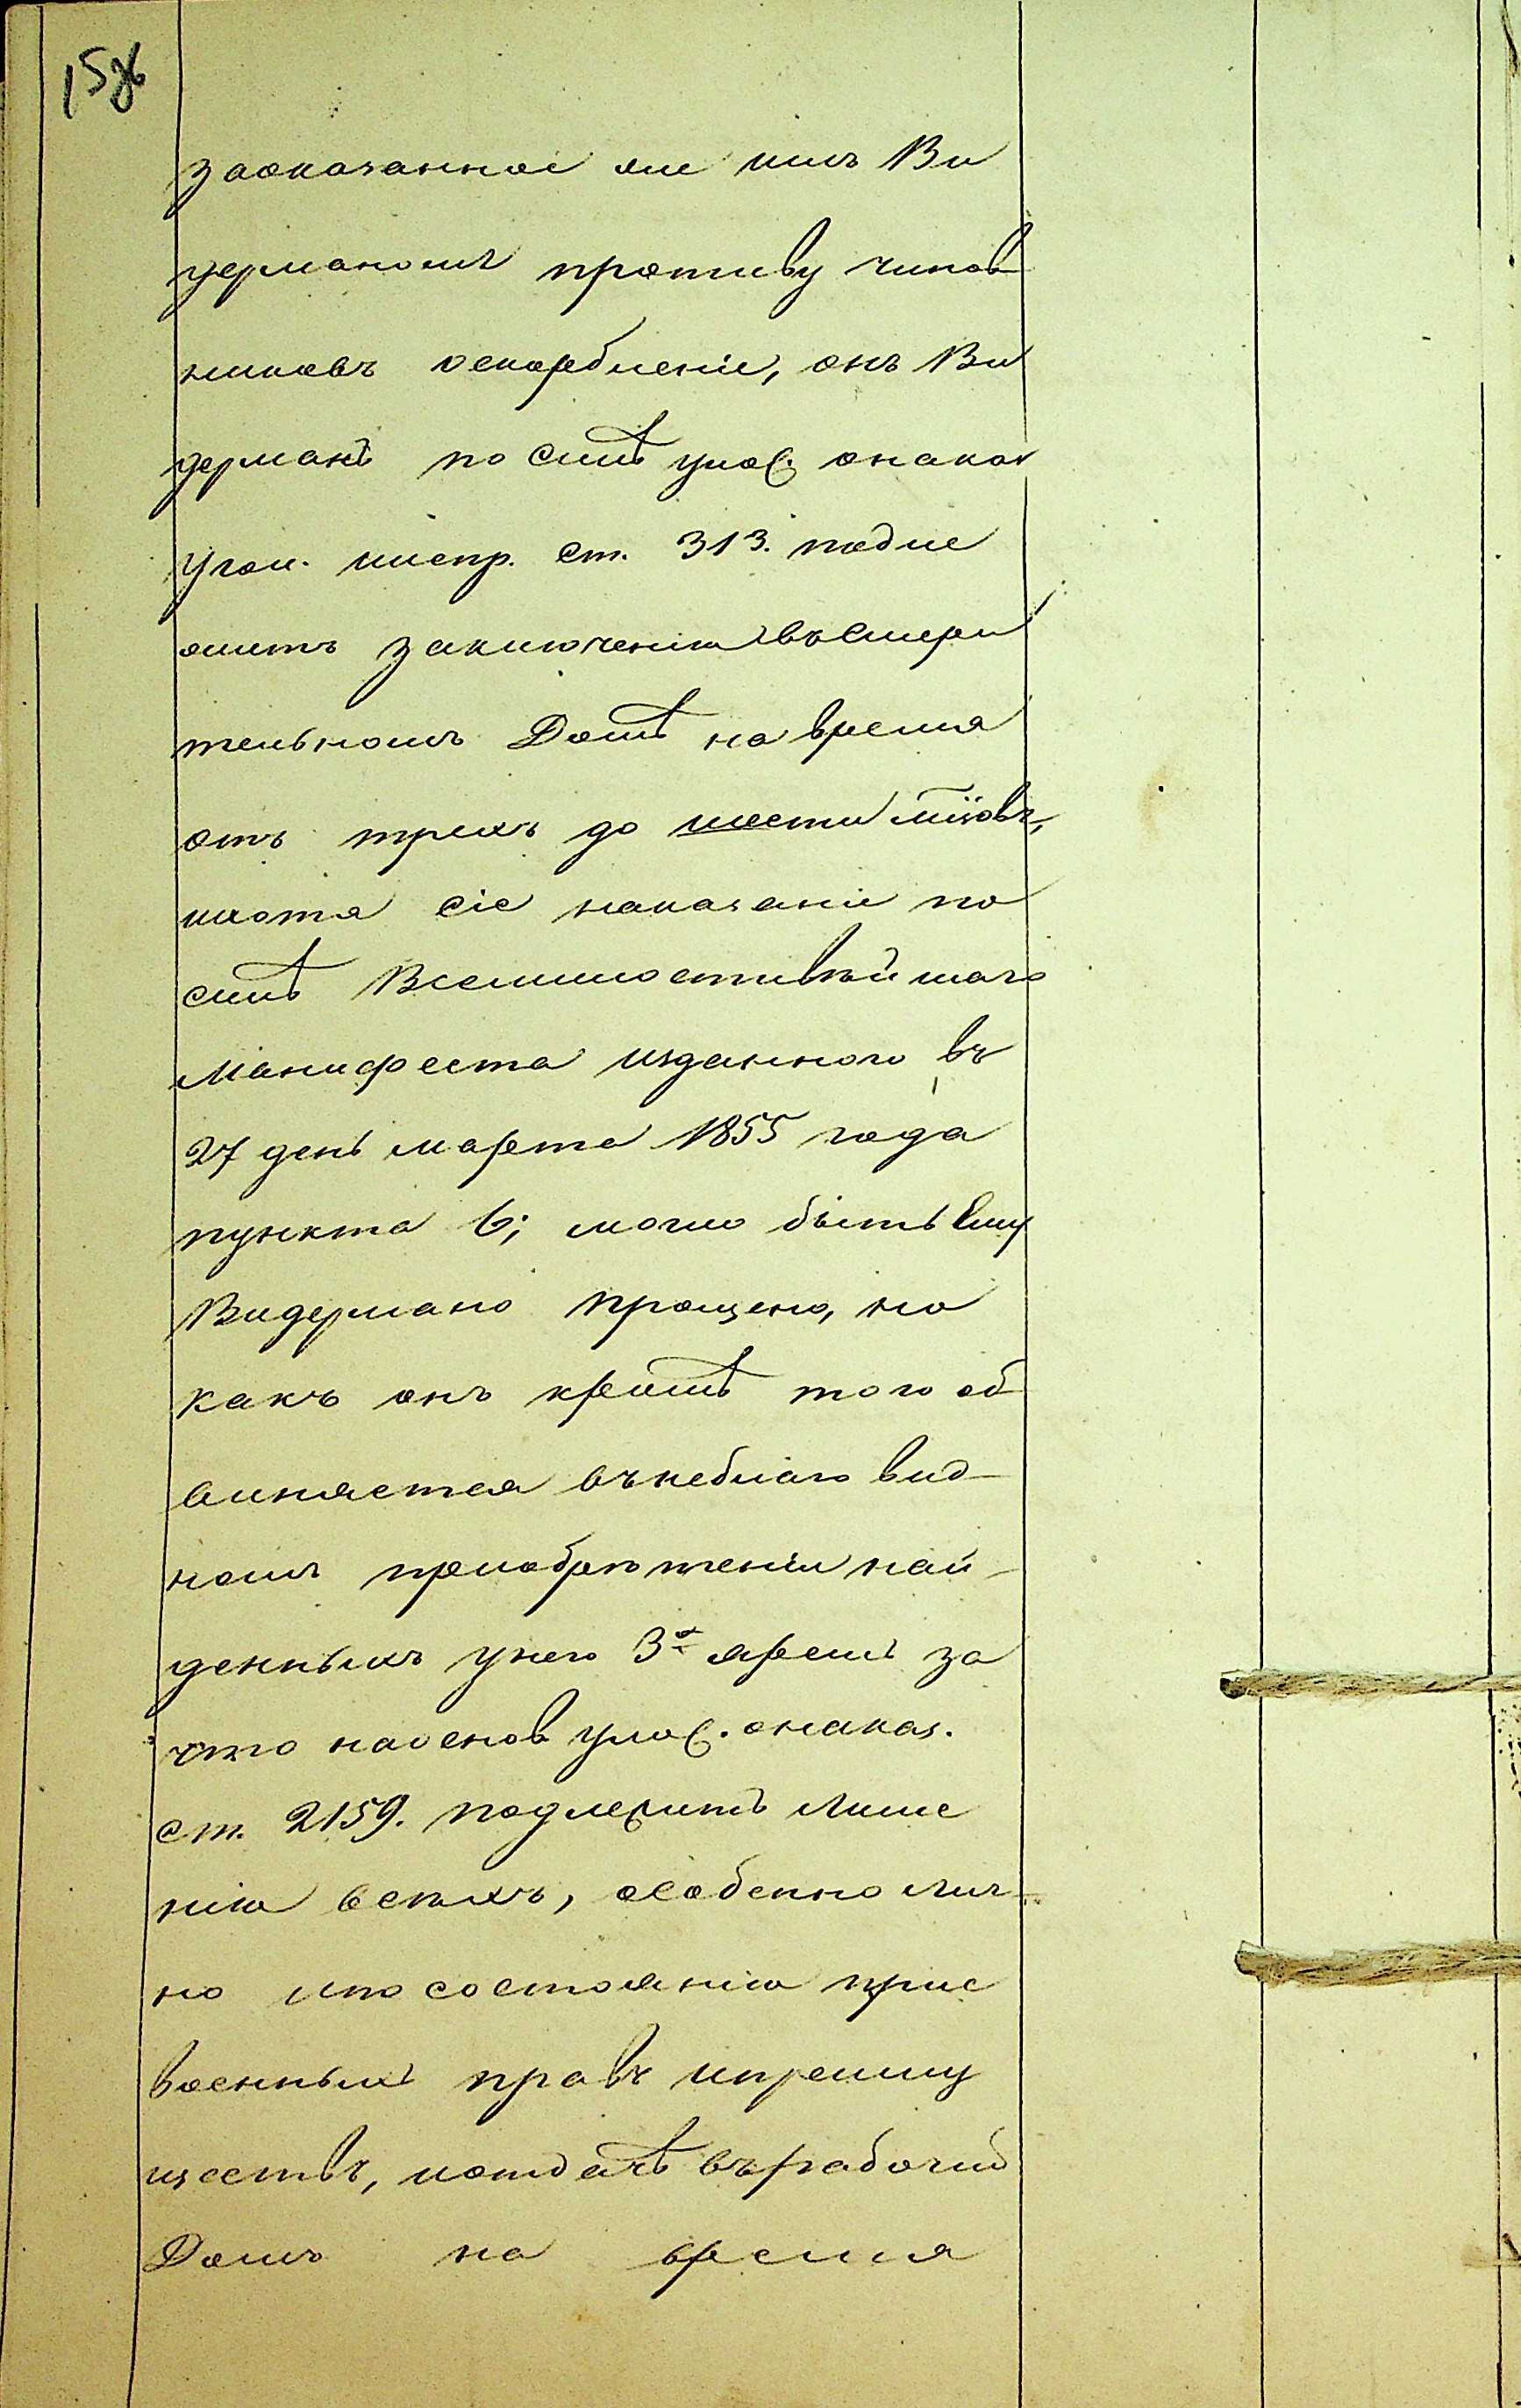 15об
заоказанное же имъ Ви
дерманомъ противу чинов
никовъ оскорбленіе, онъ Ви
дерманъ по силѣ улож. онаказ
Угол. ииспр. ст. 313. подле
житъ заключенію въсмири
тельномъ Домѣ на время
отъ трехъ до шести мѣ̃цовъ,
ихотя сіе наказаніе по
силѣ Всемилостивѣйшаго
Манифеста изданного въ
27 день марта 1855 года
пункта 6; могло быть Ему
Видермано прощено, но
какъ онъ кромѣ того об
виняется въ неблаго вид-
номъ преобрѣтеніи най-
денныхъ унего 3х яремъ за
что наоснов улож. онаказ.
ст. 2159. подлежитъ лише
нію всѣхъ, особенно лич-
но ипо состоянію прис
военныхъ правъ ипреиму
ществъ, иотдачѣ върабочій
Домъ на время